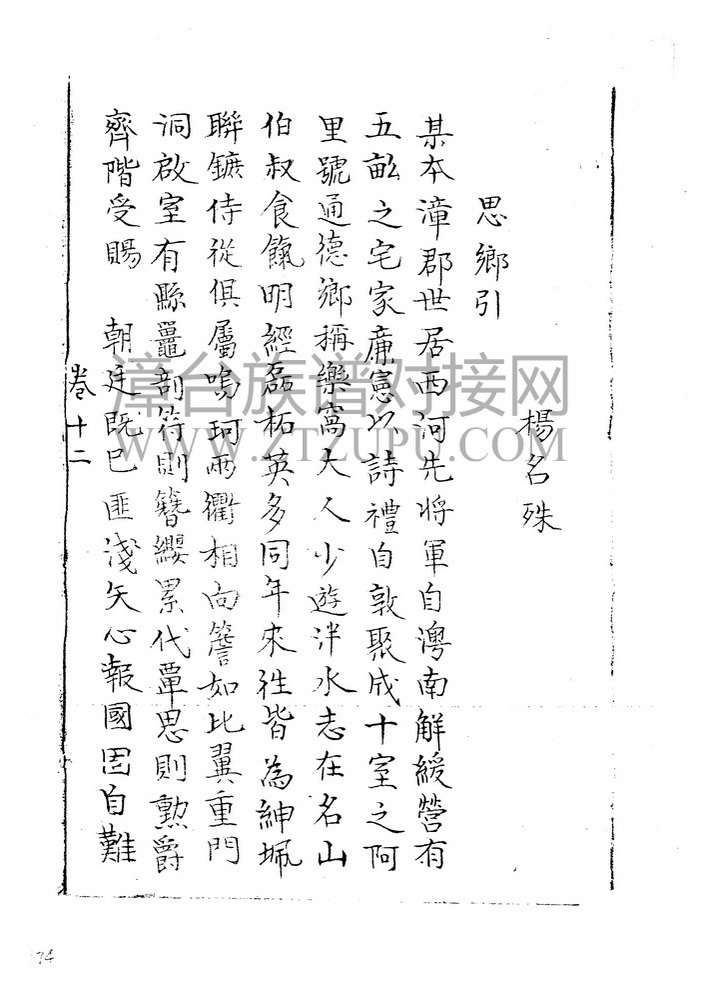 思鄉引
楊名殊
某本漳郡世居西河先将軍自澚南解綬營有
五畝之宅家庿憲以詩禮自敦聚成十室之阿
里號通德鄉稱樂窩大人少遊泮水志在名山
伯叔食餼明經磊柘英多同年來徃皆為紳珮
聯鑣侍從俱屬鳴珂兩衢相向簷如比翼重門
洞啟室有縣鼉剖符則簪纓累代覃恩則勲爵
齊階受賜 朝廷既已匪淺矢心報國固自難
卷十二
漳台族谱对接网
WWW.ZTZUPU.COM
74